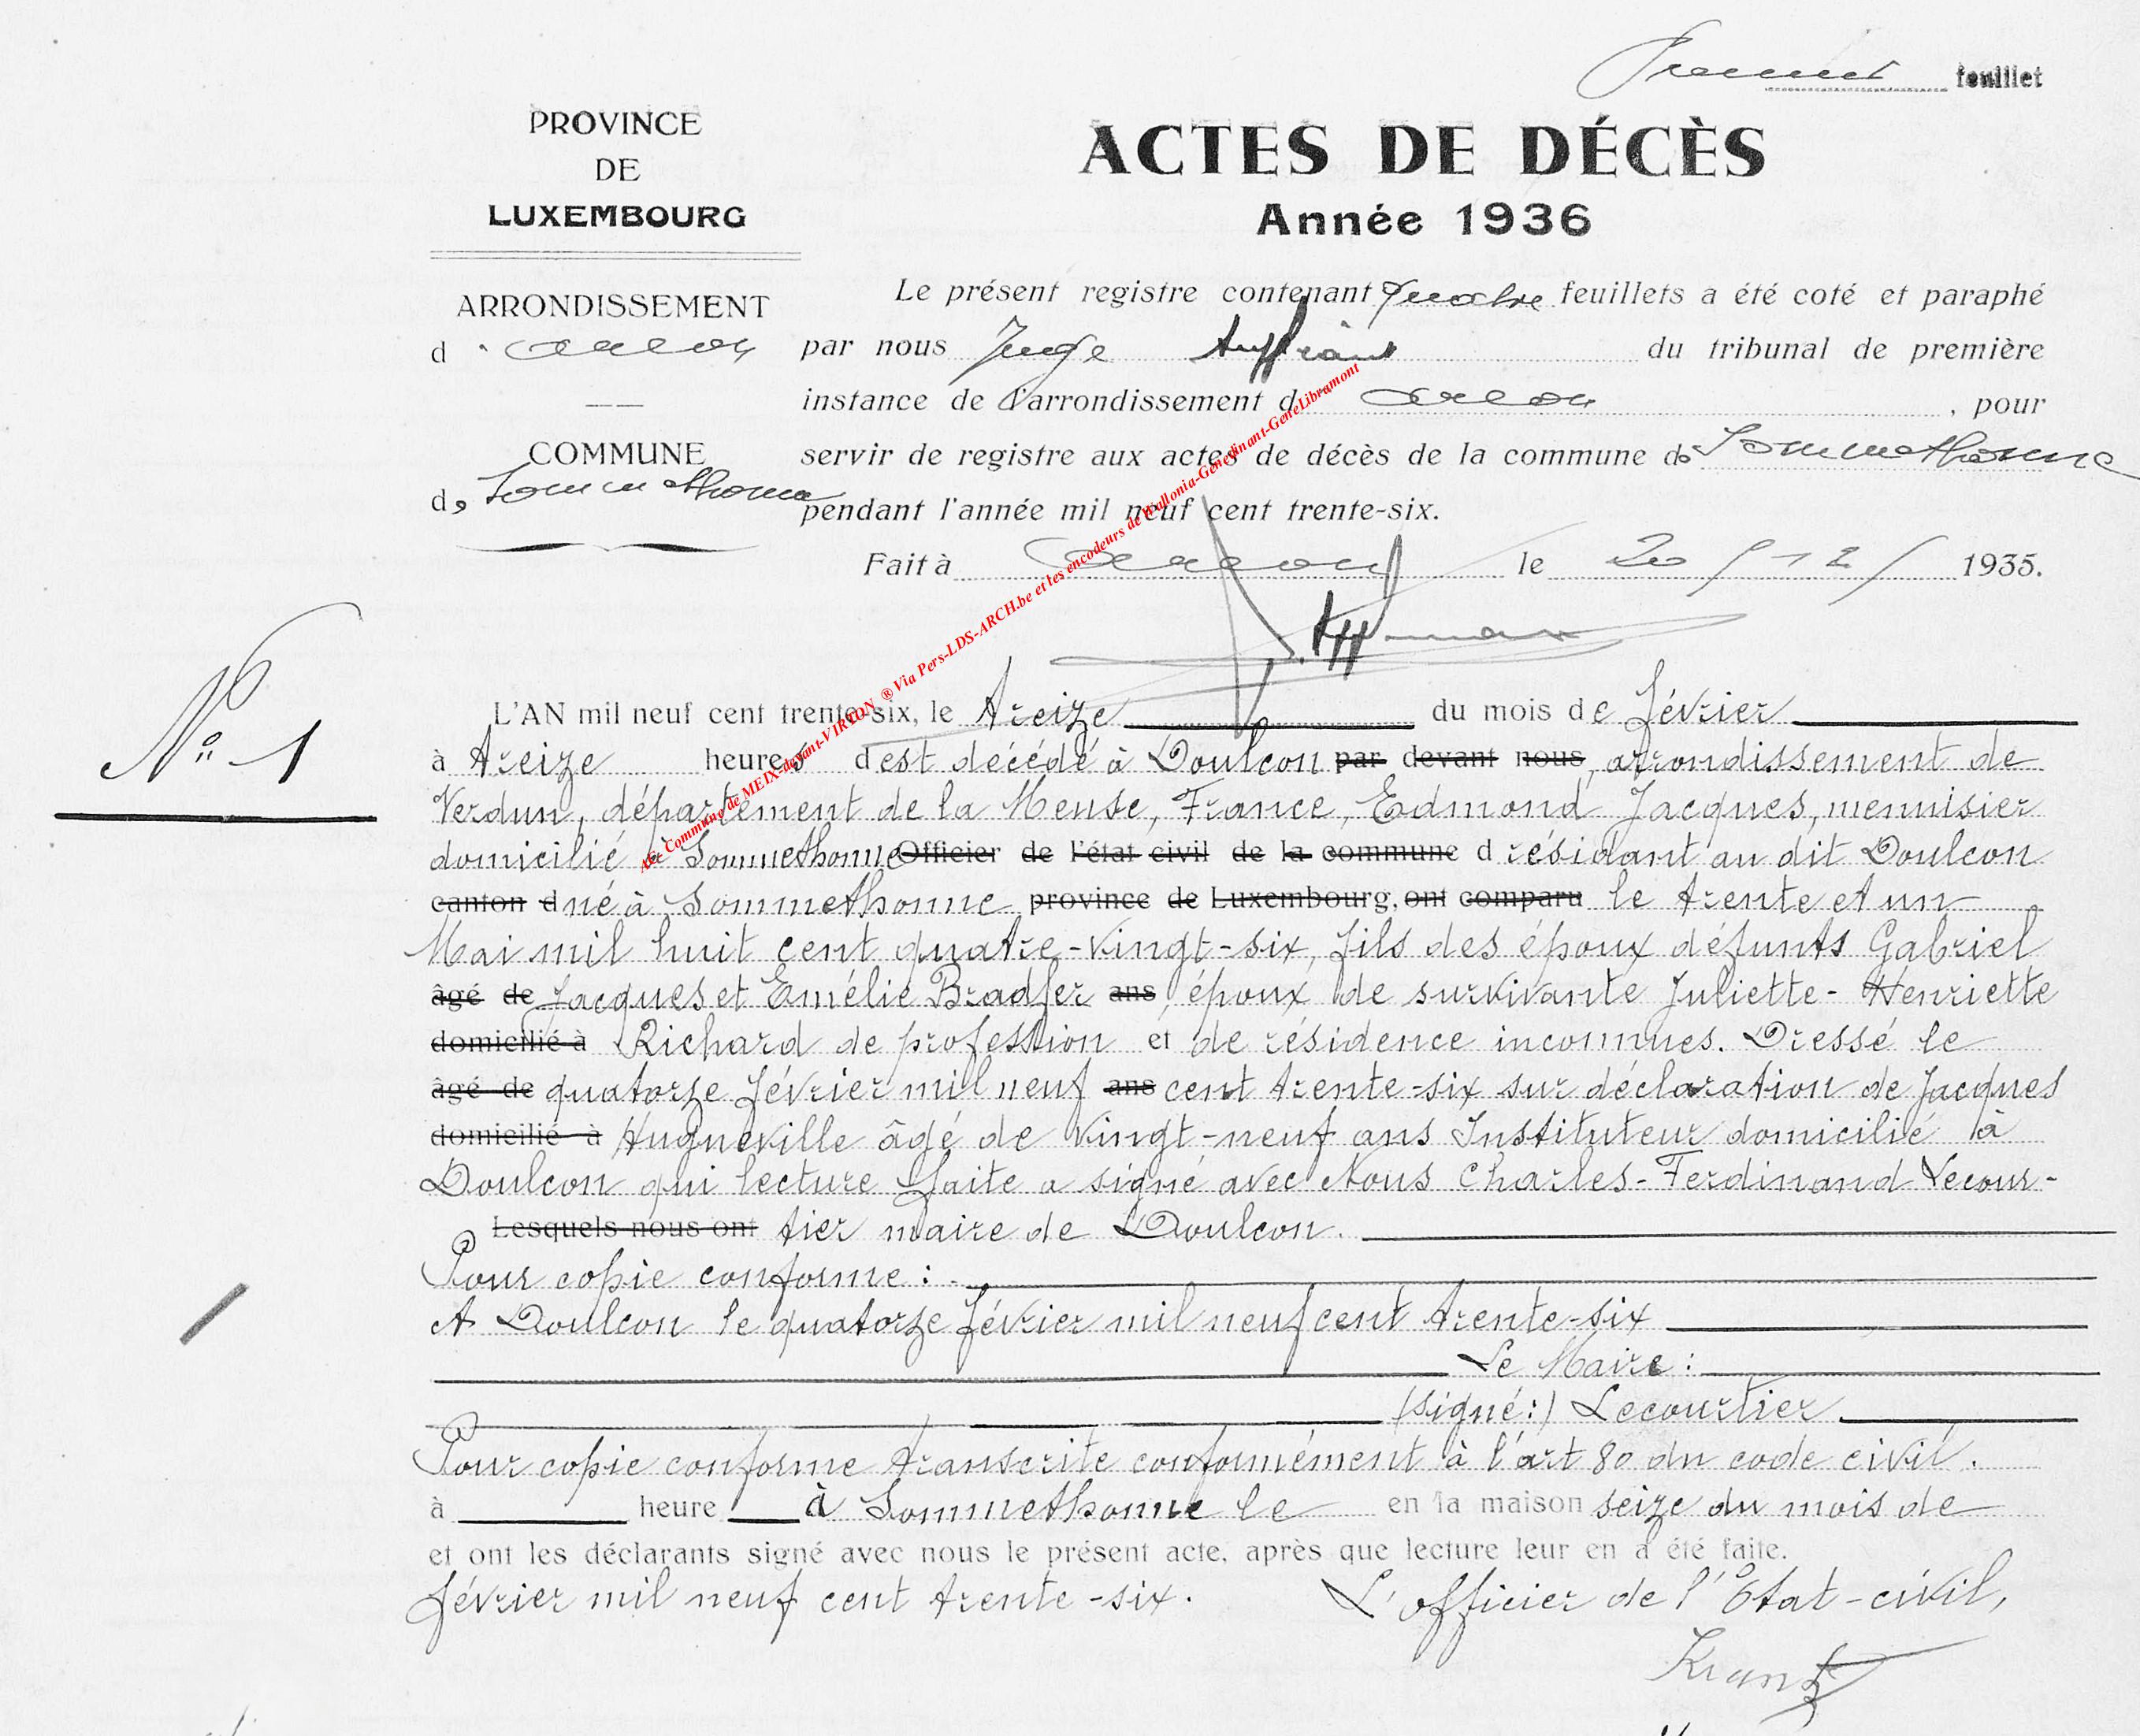 Premier feuillet
PROVINCE
DE
LUXEMBOURG
ACTES DE DÉCÈS
Année 1936
ARRONDISSEMENT
d'Arlon
COMMUNE
de Sommethonne
Le présent registre contenant quatre feuillets a été coté et paraphé
par nous Juge du tribunal de première
instance de l'arrondissement d'Arlon, pour
servir de registre aux actes de décès de la commune de Sommethonne
pendant l'année mil neuf cent trente-six.
Fait à Arlon le 20/12/1935.
N° 1
L'AN mil neuf cent trente-six, le treize du mois de février
à treize heures est décédé à Doulcon par devant nous, arrondissement de
Verdun, département de la Meuse, France, Edmond Jacques, menuisier
domicilié à Sommethonne Officier de l'état civil de la commune d résidant au dit Doulcon
canton d né à Sommethonne province de Luxembourg, ont comparu le trente et un
Mai mil huit cent quatre-vingt-six, fils des époux défunts Gabriel
âgé de Jacques et Emélie Bradfer ans, époux de survivante Juliette-Henriette
domicilié à Richard de profession et de résidence inconnues. Dressé le
âgé de quatorze février mil neuf ans cent trente-six sur déclaration de Jacques
domicilié à Hugueville âgé de vingt-neuf ans Instituteur domicilié à
Doulcon qui lecture faite a signé avec Nous Charles-Ferdinand Lecour-
Lesquels nous ont tier maire de Doulcon.
Pour copie conforme :
A Doulcon le quatorze février mil neuf cent trente-six
Le Maire :
(signé:) Lecourtier
Pour copie conforme transcrite conformément à l'art 80 du code civil.
à heure à Sommethonne le en la maison seize du mois de
et ont les déclarants signé avec nous le présent acte, après que lecture leur en a été faite.
février mil neuf cent trente-six. L'officier de l'Etat-civil,
Krantz
AE. Commune de MEIX-devant-VIRTON ® Via Pers-LDS-ARCH.be et les encodeurs de Wallonia-Genedinant-GeneLibramont